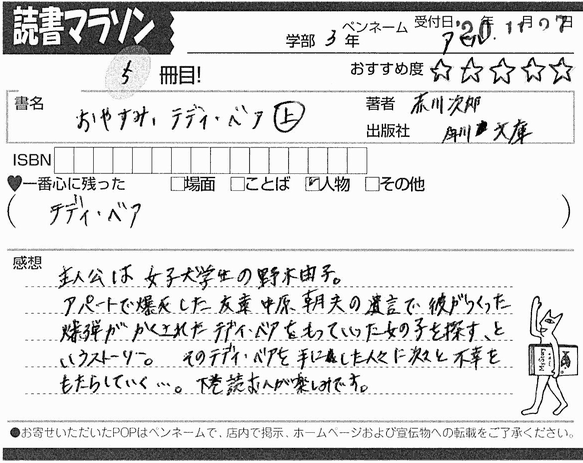 読書マラソン
学部 3年 ペンネーム アセル 受付日 '20年11月07日
5 冊目!
おすすめ度 ☆☆☆☆☆
書名 おやすみ、テディ・ベア 上
著者 赤川次郎
出版社 角川文庫
ISBN
♥一番心に残った □場面 □ことば ☑人物 □その他
( テディ・ベア )
感想
主人公は女子大学生の野木由子。
アパートで爆死した友達中原朝夫の遺言で彼がつくった
爆弾がかくされたテディ・ベアをもっていった女の子を探す、と
いうストーリー。 そのテディ・ベアを手にした人々に次々と不幸を
もたらしていく…。下巻読むのが楽しみです。
Mystery
●お寄せいただいたPOPはペンネームで、店内で掲示、ホームページおよび宣伝物への転載をご了承ください。